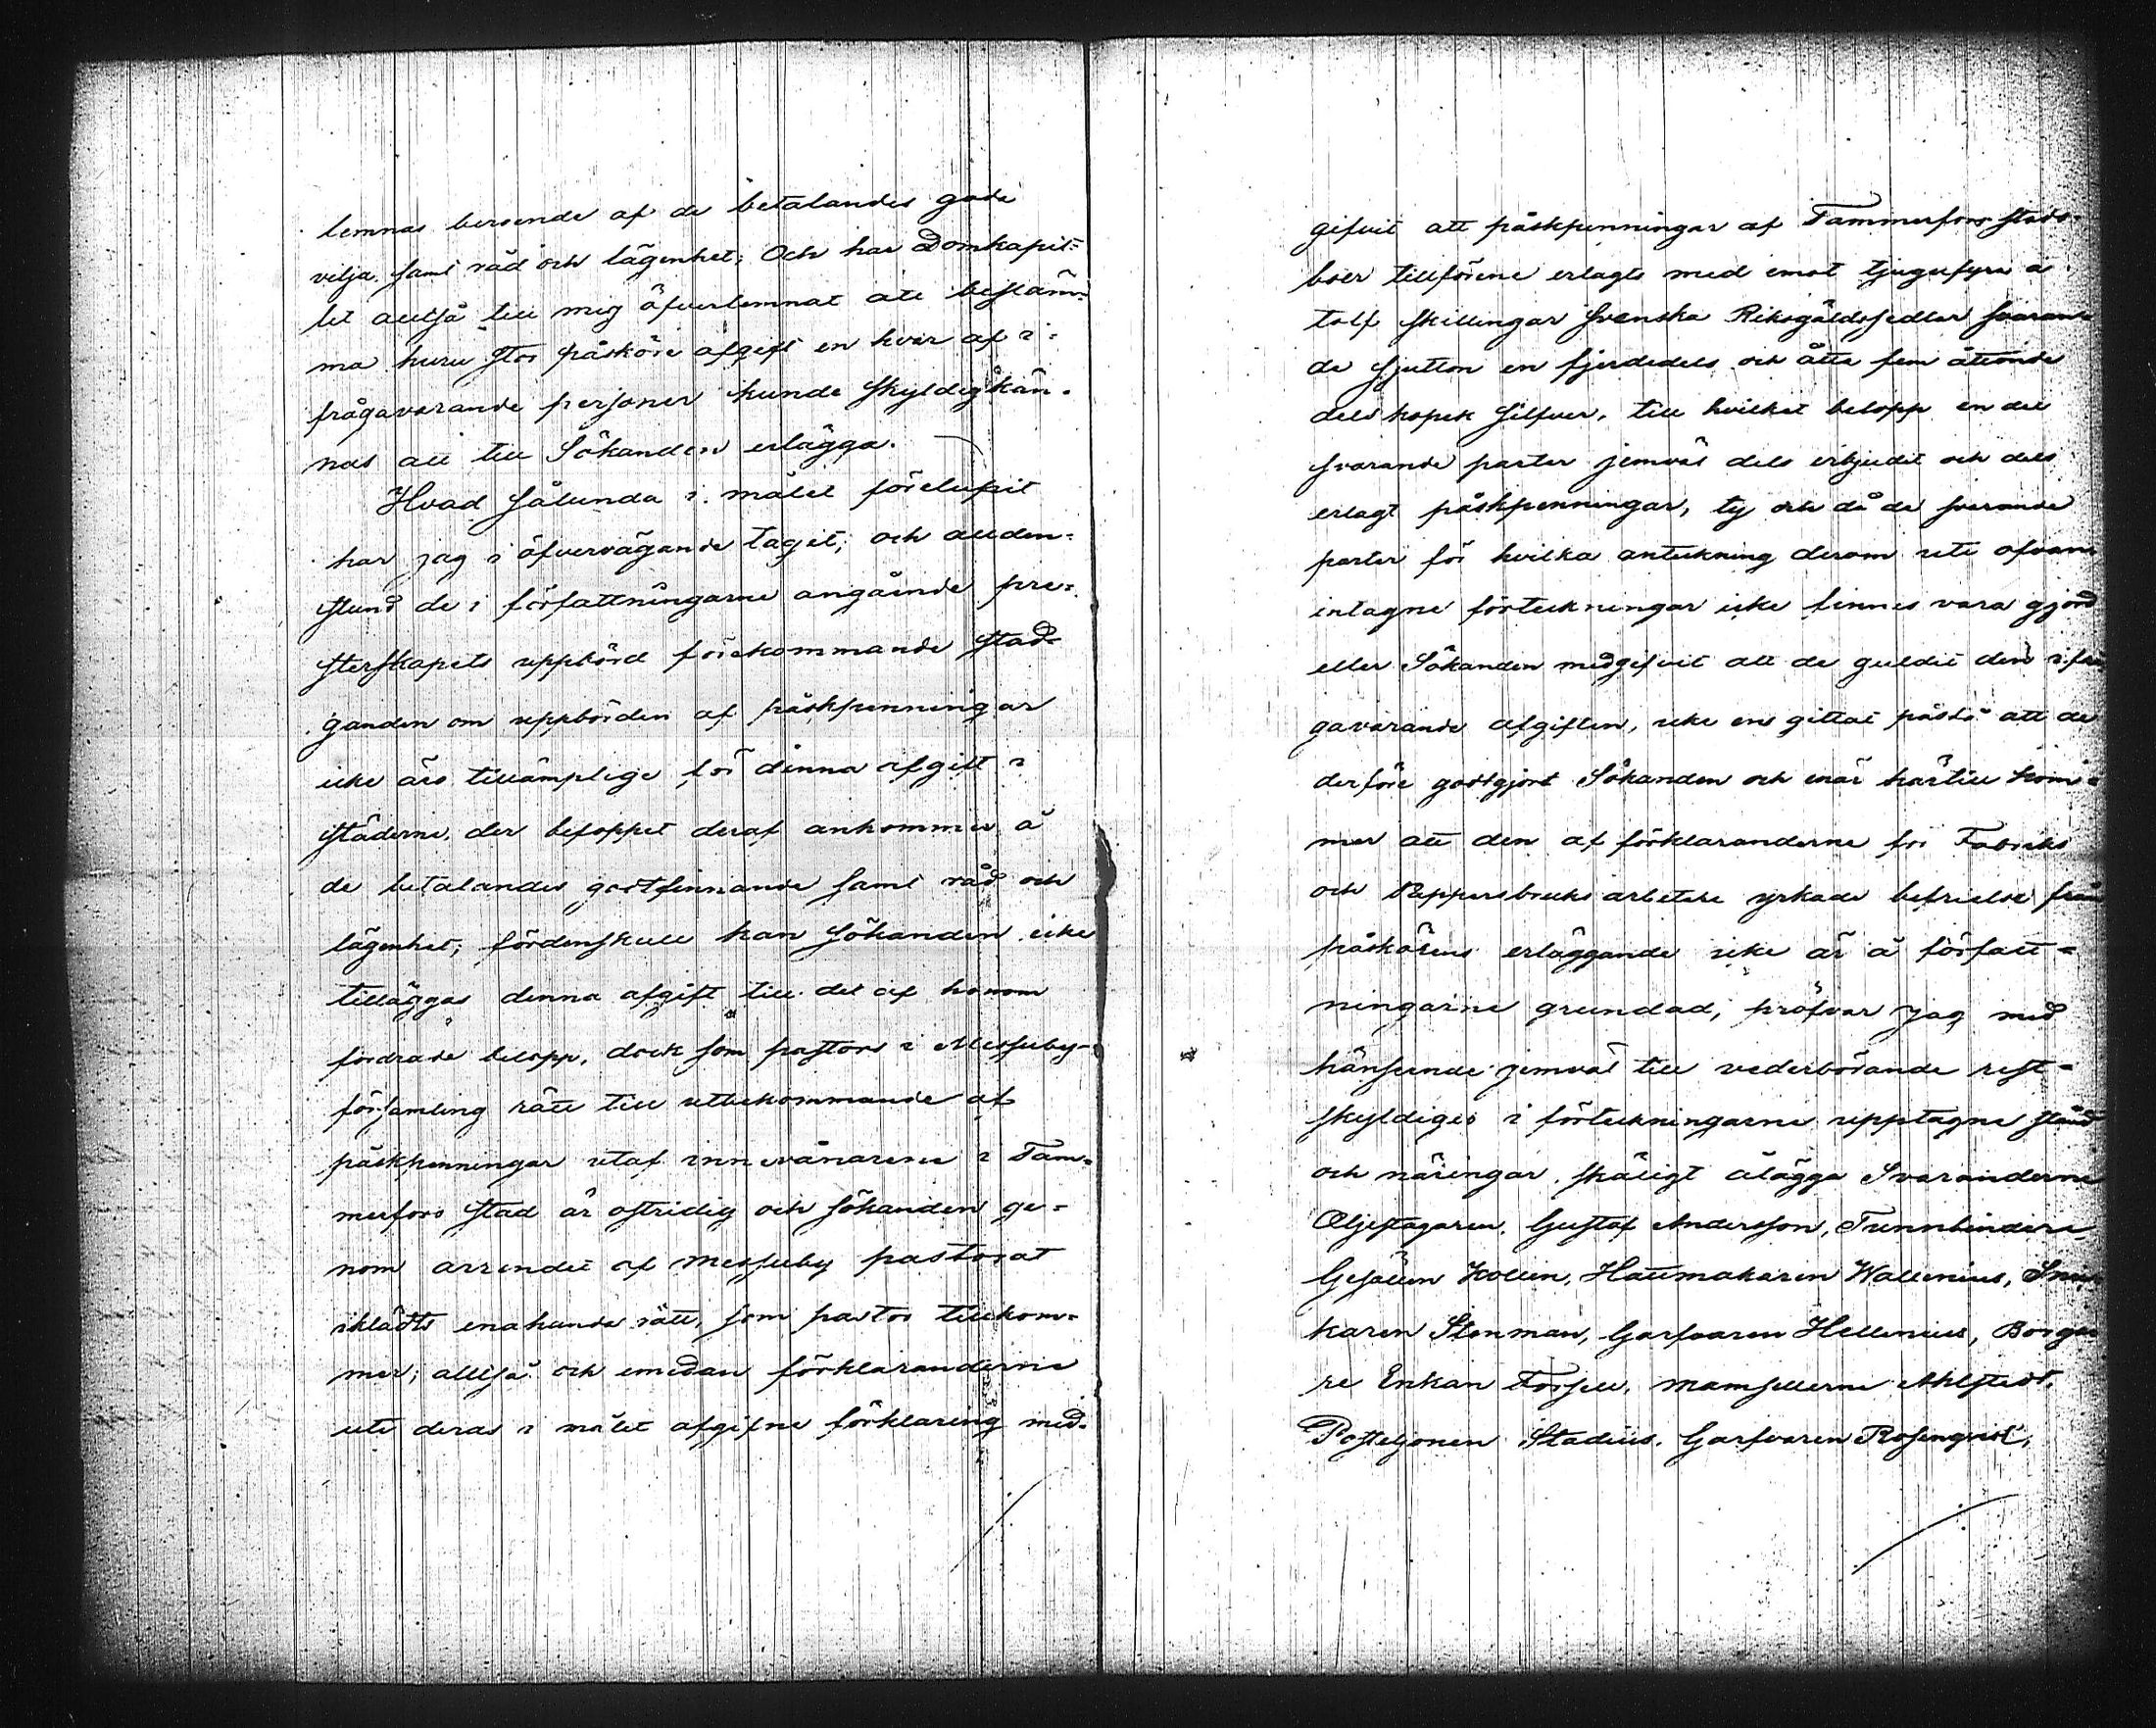 lemnas beroende af de betalandes goda
vilja samt råd och lägenhet; Och har Domkapit=
let alltså till mig öfverlemnat att bestäm=
ma huru stor påsköre afgift en hvar af i=
frågavarande personer kunde skyldig kän=
nas att till Sökanden erlägga.
Hvad sålunda i målet förelupit
har jag i öfvervägande tagit; och allden=
stund de i författningarne angående pre=
sterskapets uppbörd förekommande stad=
ganden om uppbörden af påskpenningar
icke äro tillämplige för denna afgift i
städerne, der beloppet deraf ankommer å
de betalandes godtfinnande samt råd och
lägenhet; fördenskull kan Sökanden icke
tilläggas denna afgift till det af honom
fordrade belopp, dock som pastors i Messuby
församling rätt till utbekommande af
påskpenningar utaf innevånarene i Tam=
merfors stad är ostridig och sökanden ge=
nom arrendet af Messuby pastorat
iklädts enahanda rätt, som pastor tillkom=
mer; alltså och emedan förklaranderne
uti deras i målet afgifne förklaring med=
gifvit att påskpenningar af Tammerfors stads=
boer tillförene erlagts med emot tjugufyra a
tolf skillingar Svenska Riksgäldssedlar svaran=
de sjutton en fjerdedels och åtta fem åttonde
dels kopek silfver, till hvilket belopp en del
svarande parter jemväl dels erbjudit och dels
erlagt påskpenningar, ty och då de svarande
parter för hvilka anteckning derom uti ofvan
intagne förteckningar icke finnes vara gjord
eller Sökanden medgifvit att de guldit den i frå
gavarande afgiften, icke ens gittat påstå att de
derföre godtgjort Sökanden och enär härtill kom=
mer att den af förklaranderne för Fabriks
och Pappersbruks arbetare yrkade befrielse från
påskörens erläggande icke är å författ=
ningarne grundad; pröfvar jag med
hänseende jemväl till vederbörande rest=
skyldiges i förteckningarne upptagne stånd
och näringar, skäligt ålägga Svaranderne
Oljeslagaren Gustaf Andersson, Tunnbindare
Gesällen Kollin, Hattmakaren Wallenius, Snic
karen Stenman, Garfvaren Hellenius, Borga
re Enkan Forsell, Mamsellerne Ahlstedt,
Posteljonen Stadius, Garfvaren Rosenqvist,